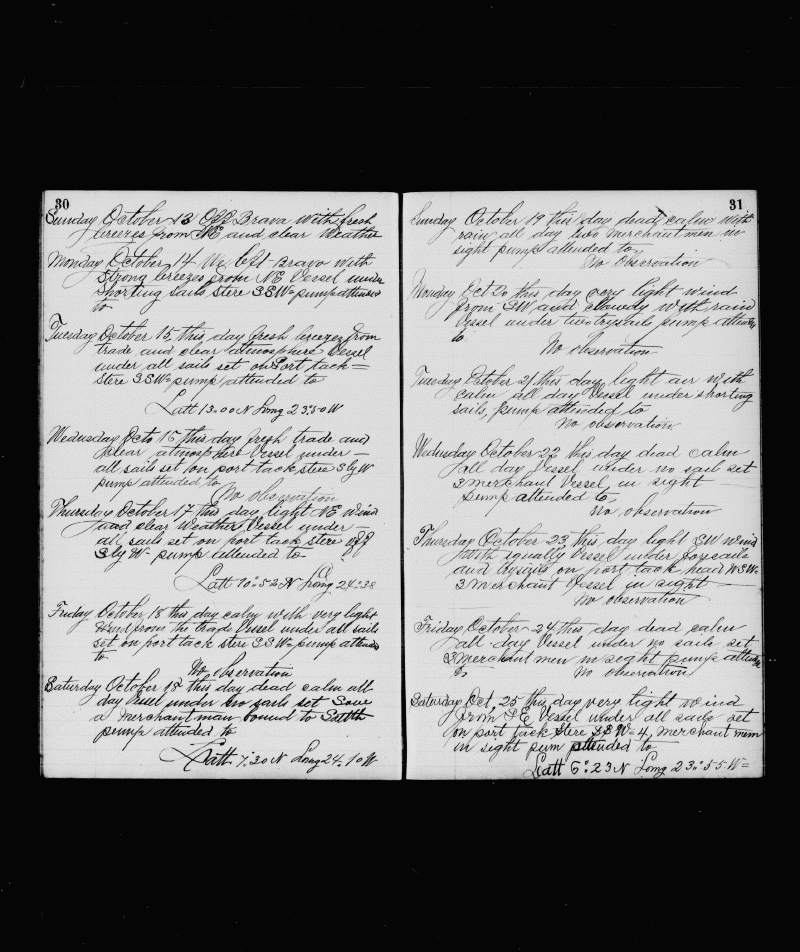 30
Sunday October 13 Off Brava with fresh
breezes from NE and clear Weather
Monday October 14 Brava with
Strong breezes from NE Vessel under
Shorting sails stere SSW= pump attended
to
Tuesday October 15, this day fresh breezes from
trade and clear atmosphere Vessel
under all sails set on Port tack=
stere SSW= pump attended to
Latt 13.00 N Long 23.50 W
Wednesday Octo 16 this day fresh trade and
clear atmosphere Vessel under —
all sails set on port tack, stere Sly W
pump attended to
No observation
Thursday October 17 this day light NE wind
and clear Weather Vessel under —
all sails set on port tack stere
Sly W- pump attended to-
Latt 10"52 N Long 24"38
Friday October, 18 this day calm with very light
wind from the trade Vessel under all sails
set on port tack stere SSW= pump attended
to
No observation
Saturday October this day dead calm all
day Vessel under two sails set Sove
a merchantman bound to South
pump attended to
Latt. 7.30 N Long 24.10 W
31
Sunday October 19 this day dead calm with
rain all day two merchant men in
sight pump attended to
No Observation
Monday Oct 20 this day very light wind
from SW and clowdy with rain
Vessel under two trysails pump attended
to
No observation
Tuesday October 21 this day light air with
calm all day Vessel under shorting
sails, pump attended to
No observation
Wednesday October 22 this day dead calm
all day Vessel under no sail set
3 merchant Vessel in sight —
pump attended to
No observation
Thursday October 23 this day light SW wind
with squally Vessel under foresails
and trysails on port tack head WSW-
3 merchant Vessel in sight —
No observation
Friday October 24 this day dead calm
all day Vessel under no sails set
3 merchant men in sight pump attended
to No observation
Saturday Oct, 25 this day very light wind
from SE Vessel under all sails set
on port tack stere SSW= 4, merchant mem
in sight pum attended to
Latt 6".23 N Long 23".55. W=